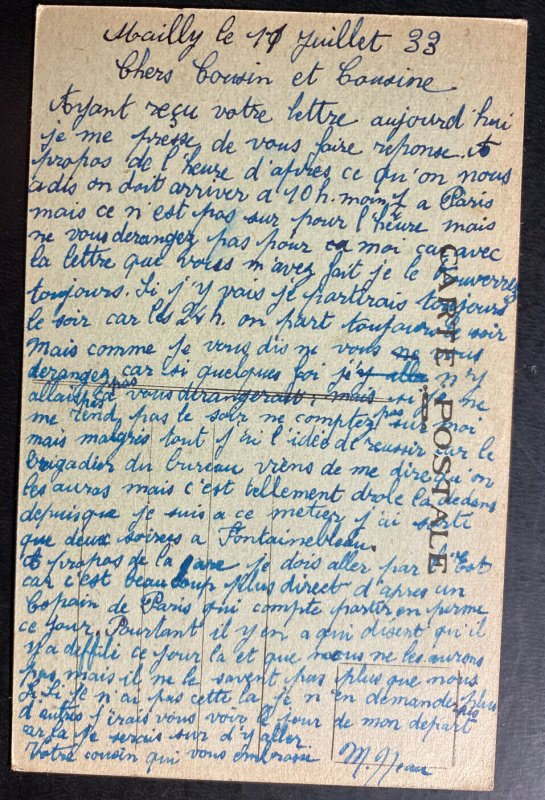 Mailly le 11 Juillet 33
Chers Cousin et Cousine
Ayant reçu votre lettre aujourd'hui
je me presse de vous faire reponse. A
propos de l'heure d'apres ce qu'on nous
a dis on doit arriver a 10h. moins a Paris
mais ce n'est pas sur pour l'heure mais
ne vous derangez pas pour ca moi car avec
la lettre que vous m'avez fait je le trouverrez
toujours. Si j'y vais je partirais toujours
le soir car les 24h. on part toujours le soir
mais comme je vous dis ne vous ne vous
derangez car si quelques foi j'y n'y
allais pas ca vous derangerait; mais si je ne
me rend pas le soir ne comptez pas sur moi
mais malgres tout j'ai l'idee de reussir car le
brigadier du bureau viens de me dire qu'on
les auras mais c'est tellement drole la dedans
depuis que je suis a ce metier j'ai sorti
que deux soirees a Fontainebleau.
A propos de la Gare je dois aller par l'Est
car c'est beaucoup plus direct d'apres un
Copain de Paris qui compte partir en perme
ce jour. Pourtant il y en a qui disent qu'il
y a deffili ce jour la et que nous ne les aurons
pas, mais il ne le savent pas plus que nous
Si je n'ai pas cette la je n'en demande pas
d'autres j'irais vous voir le jour de mon depart
car la je serais sur d'y aller
Votre cousin qui vous embrasse
M. Neau
CARTE POSTALE